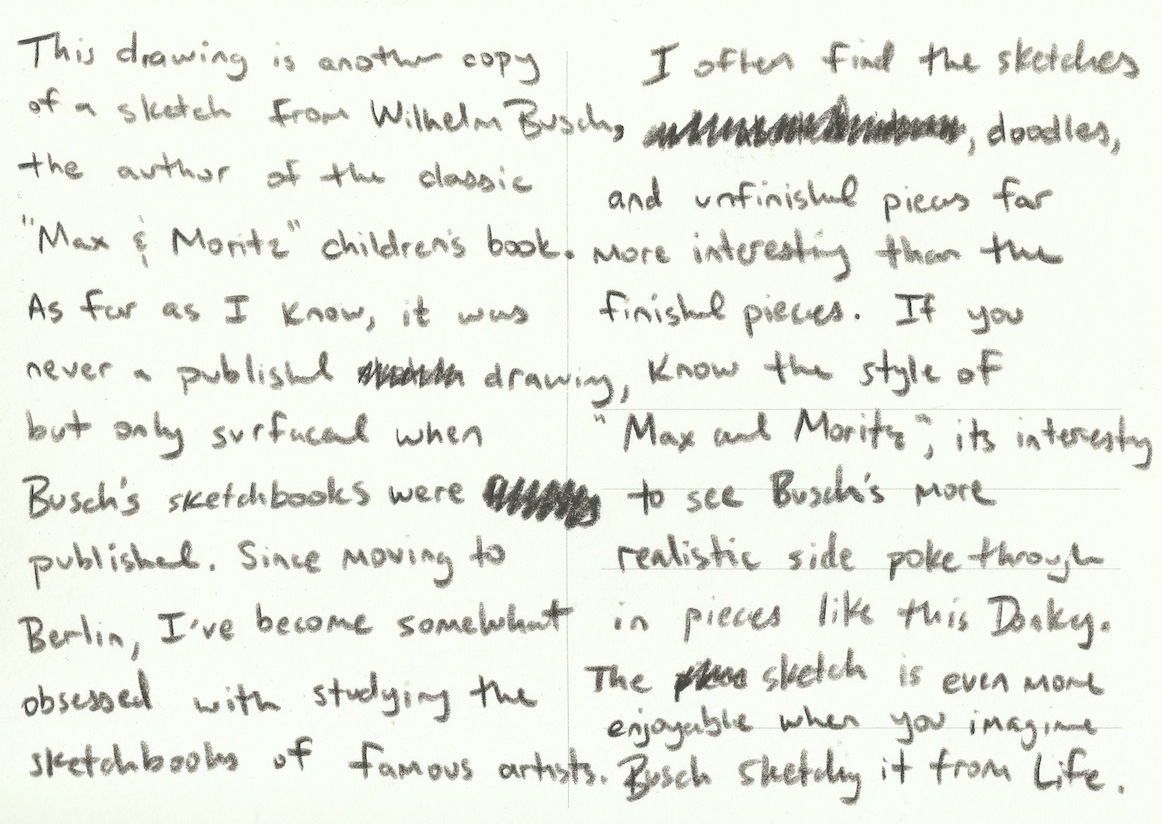 This drawing is another copy
of a sketch from Wilhelm Busch,
the author of the classic
"Max & Moritz" children's book.
As far as I know, it was
never a published drawing,
but only surfaced when
Busch's sketchbooks were
published. Since moving to
Berlin, I've become somewhat
obsessed with studying the
sketchbooks of famous artists.
I often find the sketches
, doodles,
and unfinished pieces far
more interesting than the
finished pieces. If you
know the style of
"Max and Moritz", its interesting
to see Busch's more
realistic side poke through
in pieces like this Donkey.
The sketch is even more
enjoyable when you imagine
Busch sketching it from Life.